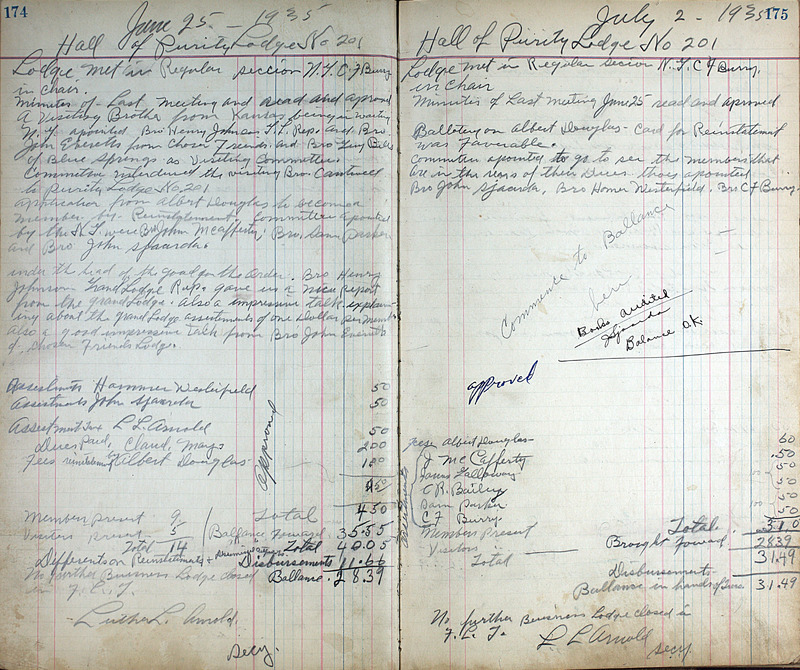 174
June 25 - 1935
Hall of Purity Lodge No 201
Lodge met in Regular seccion N.G. C F Burry
in Chair.
Minutes of Last meeting and read and aproved
A Visiting Brother from Kansas being in waiting
N.G. apointed Bro Henry Johnson G.L. Rep. and Bro.
John Everetts from Chosen Friends and Bro
of Blue Springs as Visiting Committee.
Committee interduced the visiting Bro. Cantwell
to Purity Lodge No. 201
application from Albert Douglas to become a
member by Reinstatement, Committee apointed
by the N.G. were Bro John McCafferty, Bro. Dann Parker
and Bro John Sjaarda.
under the head of the good for the order. Bro Henry
Johnson Grand Lodge Rep. gave us a nice Report
from the grand Lodge. also a impressive talk explain-
ing about the grand Lodge assestments of one Dollar per Member
also a good impressive talk from Bro John Everetts
of Chosen Friends Lodge.
Assestments Hammer Westerfield 50
Assestments John Sjaarda 50
Assestment L L Arnold 50
Dues Paid, Claud Mays 200
Fees reinstatement Albert Douglas 100
approved
450
Member Present 9 Total 450
Visitors Present 5 Ballance Foward 35.55
Total 14 Total 40.05
Differents on Reinstatements + Disbursements 11.66
No further Business Lodge closed Ballance. 28.39
in F. L. T.
Luther L. Arnold
secy.
175
July 2 - 1935
Hall of Purity Lodge No 201
Lodge met in Regular secion N.G. C F Burry,
in Chair
Minutes of Last Meeting June 25 read and aproved
Balloting on Albert Douglas - Card for Reinstatement
was Favorable.
Committee apointed to go to see the members that
are in the rears of their Dues. those apointed
Bro John Sjaarda, Bro Homer Westerfield, Bro C F Burry.
Commence to Ballance
here
Books audited
Sjaarda
Balance O.K.
approved
Assestments
Albert Douglas 50
J McCafferty .50
James Galloway 50
C R. Bailey 50
Dann Parker
C F Burry 50
Member Present Total. 310
Visitors Brought Foward 28.39
Total 31.49
Disbursements
Ballance in hands of Treas. 31.49
No further Business Lodge closed in
F. L. T. L L Arnold
secy.